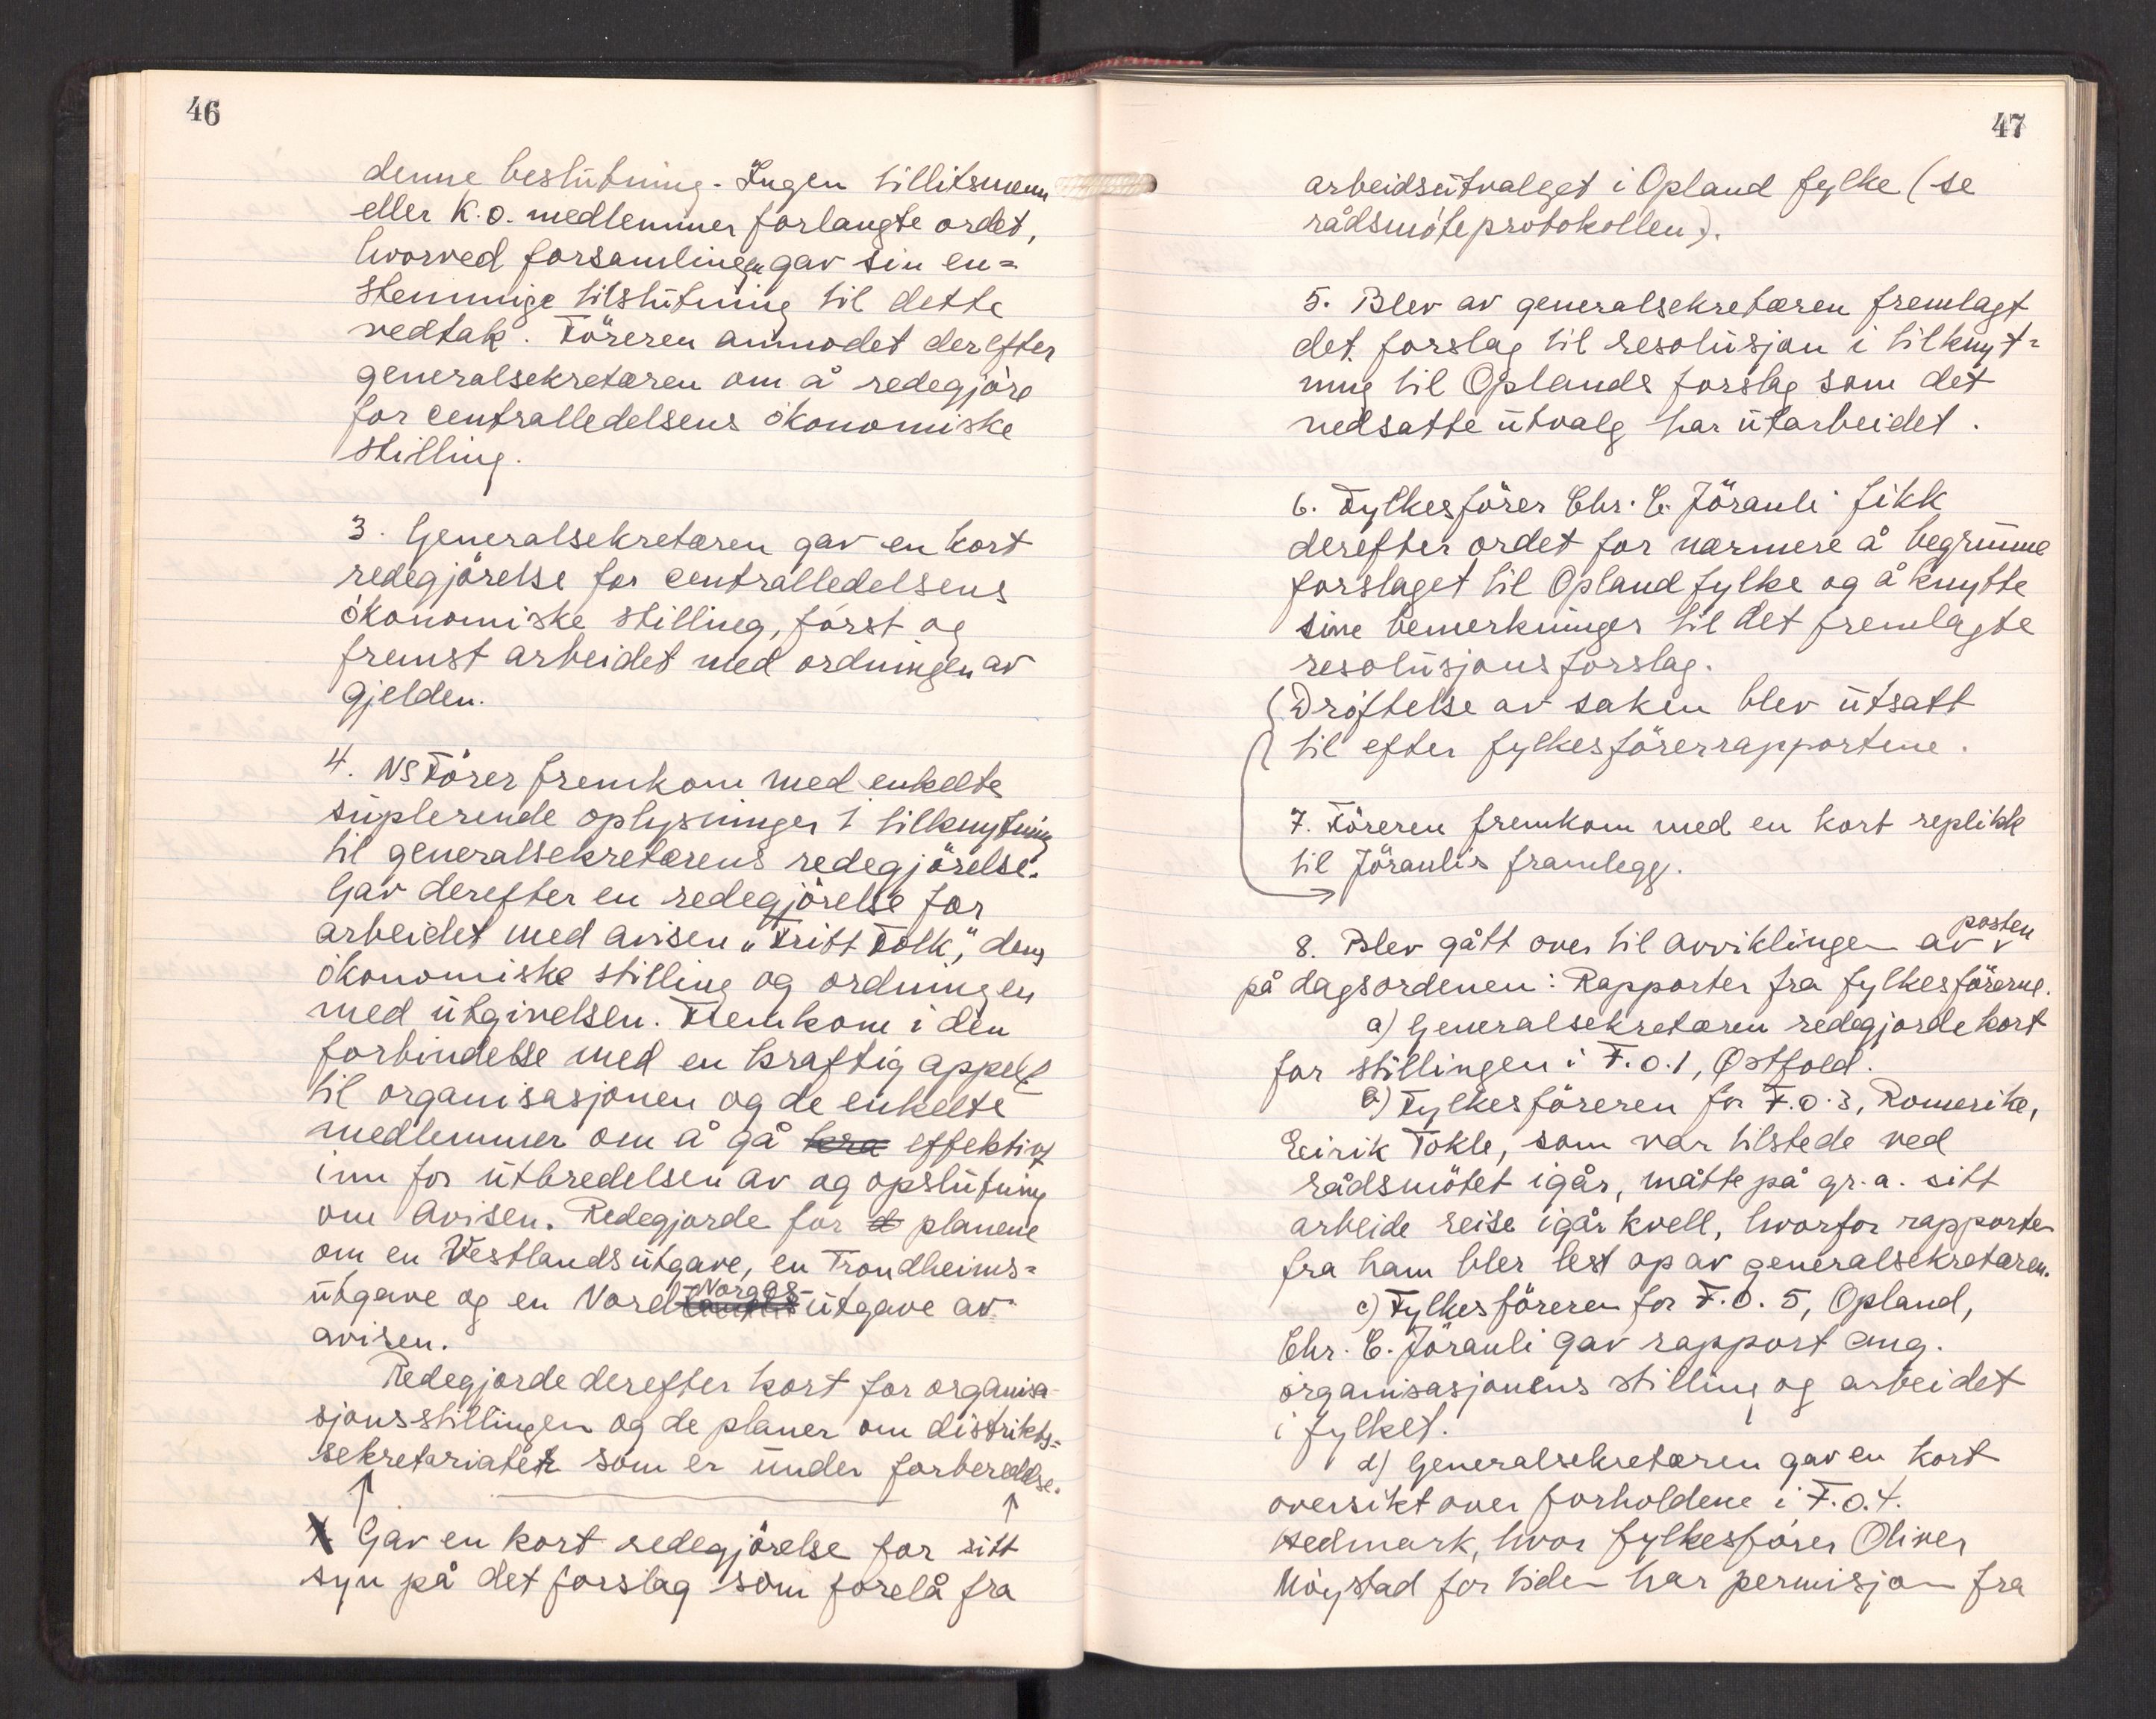 46
denne beslutning. Ingen tillitsmenn
eller K.O. medlemmer forlangte ordet,
hvorved forsamlingen gav sin en=
stemmige tilslutning til dette
vedtak. Föreren anmodet derefter
generalsekretæren om å redegjöre
for centralledelsens ökonomiske
stilling.
3. Generalsekretæren gav en kort
redegjörelse for centralledelsens
ökonomiske stilling, först og
fremst arbeidet med ordningen av
gjelden.
4. NS Förer fremkom med enkelte
suplerende oplysninger i tilknytning
til generalsekretærens redegjörelse.
Gav derefter en redegjörelse for
arbeidet med avisen „Fritt Folk", dens
ökonomiske stilling og ordningen
med utgivelsen. Fremkom i den
forbindelse med en kraftig appell
til organisasjonen og de enkelte
medlemmer om å gå kra effektivt
inn for utbredelsen av og opslutning
om avisen. Redegjorde for d planene
om en Vestlandsutgave, en Trondheims=
utgave og en Nord Norges-utgave av
avisen.
Redegjorde derefter kort for organisa-
sjonsstillingen og de planer om distrikts=
sekretariater som er under forberedelse.
Gav en kort redegjörelse for sitt
syn på det forslag som forelå fra
47
arbeidsutvalget i Opland fylke (se
rådsmöteprotokollen).
5. Blev av generalsekretæren fremlagt
det forslag til resolusjon i tilknyt=
ning til Oplands forslag som det
nedsatte utvalg har utarbeidet.
6. Fylkesförer Chr. C. Jöranli fikk
derefter ordet for nærmere å begrunne
forslaget til Opland fylke og å knytte
sine bemerkninger til det fremlagte
resolusjonsforslag.
Dröftelse av saken blev utsatt
til efter fylkesförerrapportene.
7. Föreren fremkom med en kort replikk
til Jöranlis framlegg.
8. Blev gått over til avviklingen av posten
på dagsordenen: Rapporter fra fylkesförerne.
a) Generalsekretæren redegjorde kort
for stillingen i F.O.1, Østfold.
b) Fylkesföreren for F.O.3, Romerike,
Eirik Tokle, som var tilstede ved
rådsmötet igår, måtte på gr. a. sitt
arbeide reise igår kvell, hvorfor rapporten
fra ham blev lest op av generalsekretæren.
c) Fylkesföreren for F.O. 5, Opland,
Chr. C. Jöranli gav rapport ang.
organisasjonens stilling og arbeidet
i fylket.
d) Generalsekretæren gav en kort
oversikt over forholdene i F.O.4.
Hedmark, hvor fylkesförer Oliver
Möystad for tiden har permisjon fra